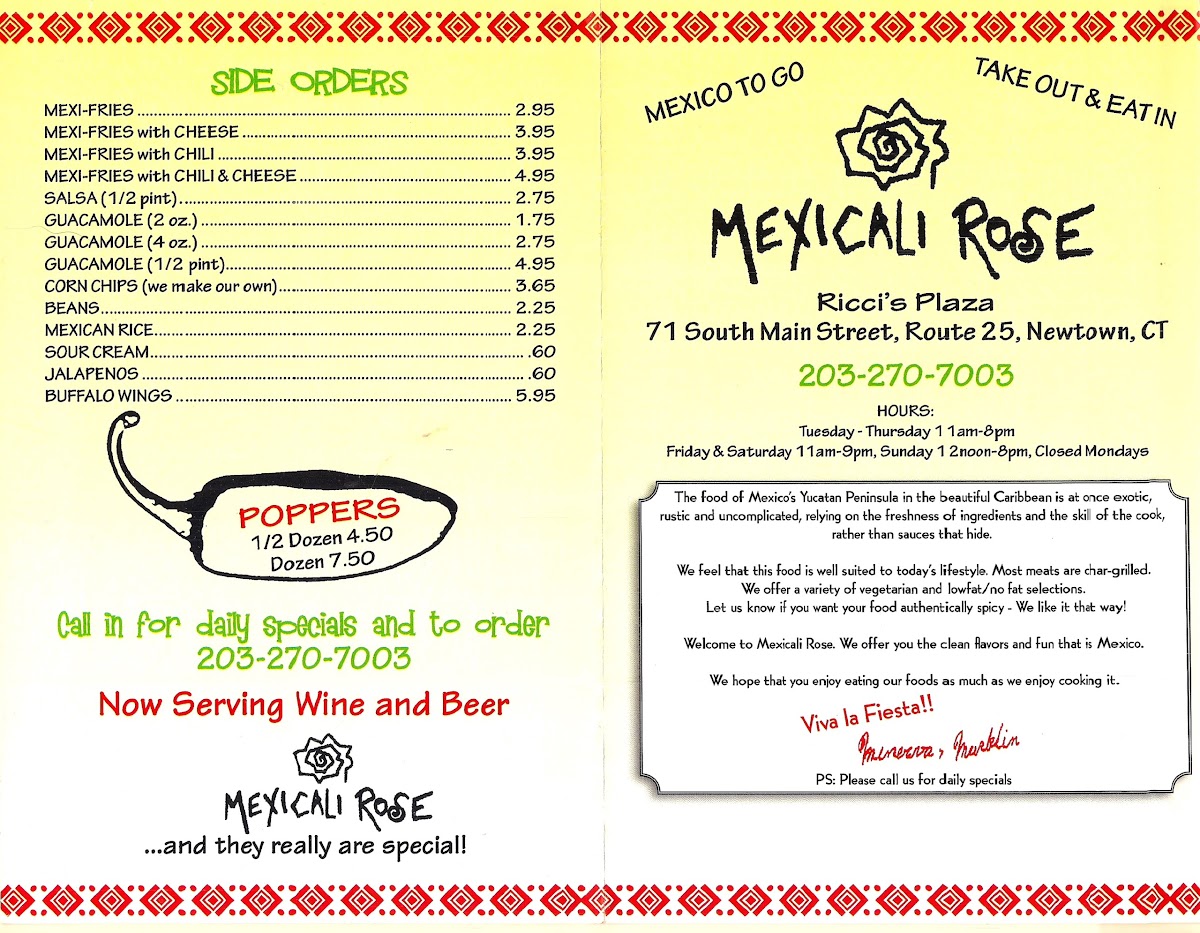 SIDE ORDERS
MEXI-FRIES ........ 2.95
MEXI-FRIES with CHEESE ........ 3.95
MEXI-FRIES with CHILI ........ 3.95
MEXI-FRIES with CHILI & CHEESE ........ 4.95
SALSA (1/2 pint) ........ 2.75
GUACAMOLE (2 oz.) ........ 1.75
GUACAMOLE (4 oz.) ........ 2.75
GUACAMOLE (1/2 pint) ........ 4.95
CORN CHIPS (we make our own) ........ 3.65
BEANS ........ 2.25
MEXICAN RICE ........ 2.25
SOUR CREAM ........ .60
JALAPENOS ........ .60
BUFFALO WINGS ........ 5.95
POPPERS
1/2 Dozen 4.50
Dozen 7.50
Call in for daily specials and to order
203-270-7003
Now Serving Wine and Beer
MEXICALI ROSE
...and they really are special!
MEXICO TO GO
TAKE OUT & EAT IN
MEXICALI ROSE
Ricci's Plaza
71 South Main Street, Route 25, Newtown, CT
203-270-7003
HOURS:
Tuesday - Thursday 11am-8pm
Friday & Saturday 11am-9pm, Sunday 12noon-8pm, Closed Mondays
The food of Mexico's Yucatan Peninsula in the beautiful Caribbean is at once exotic,
rustic and uncomplicated, relying on the freshness of ingredients and the skill of the cook,
rather than sauces that hide.
We feel that this food is well suited to today's lifestyle. Most meats are char-grilled.
We offer a variety of vegetarian and lowfat/no fat selections.
Let us know if you want your food authentically spicy - We like it that way!
Welcome to Mexicali Rose. We offer you the clean flavors and fun that is Mexico.
We hope that you enjoy eating our foods as much as we enjoy cooking it.
Viva la Fiesta!!
Minerva,
PS: Please call us for daily specials